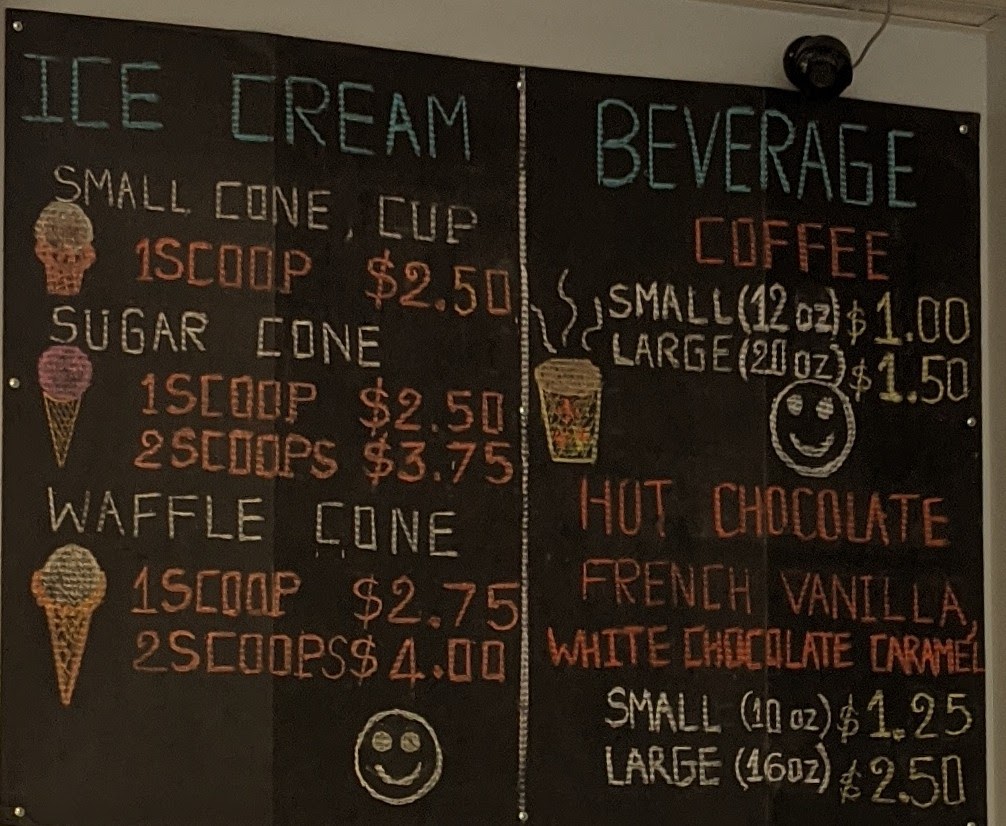 ICE CREAM
SMALL CONE, CUP
1SCOOP $2.50
SUGAR CONE
1SCOOP $2.50
2SCOOPS $3.75
WAFFLE CONE
1SCOOP $2.75
2SCOOPS $4.00
BEVERAGE
COFFEE
SMALL (12 oz) $1.00
LARGE (20 oz) $1.50
HOT CHOCOLATE
FRENCH VANILLA,
WHITE CHOCOLATE CARAMEL
SMALL (10 oz) $1.25
LARGE (16oz) $2.50